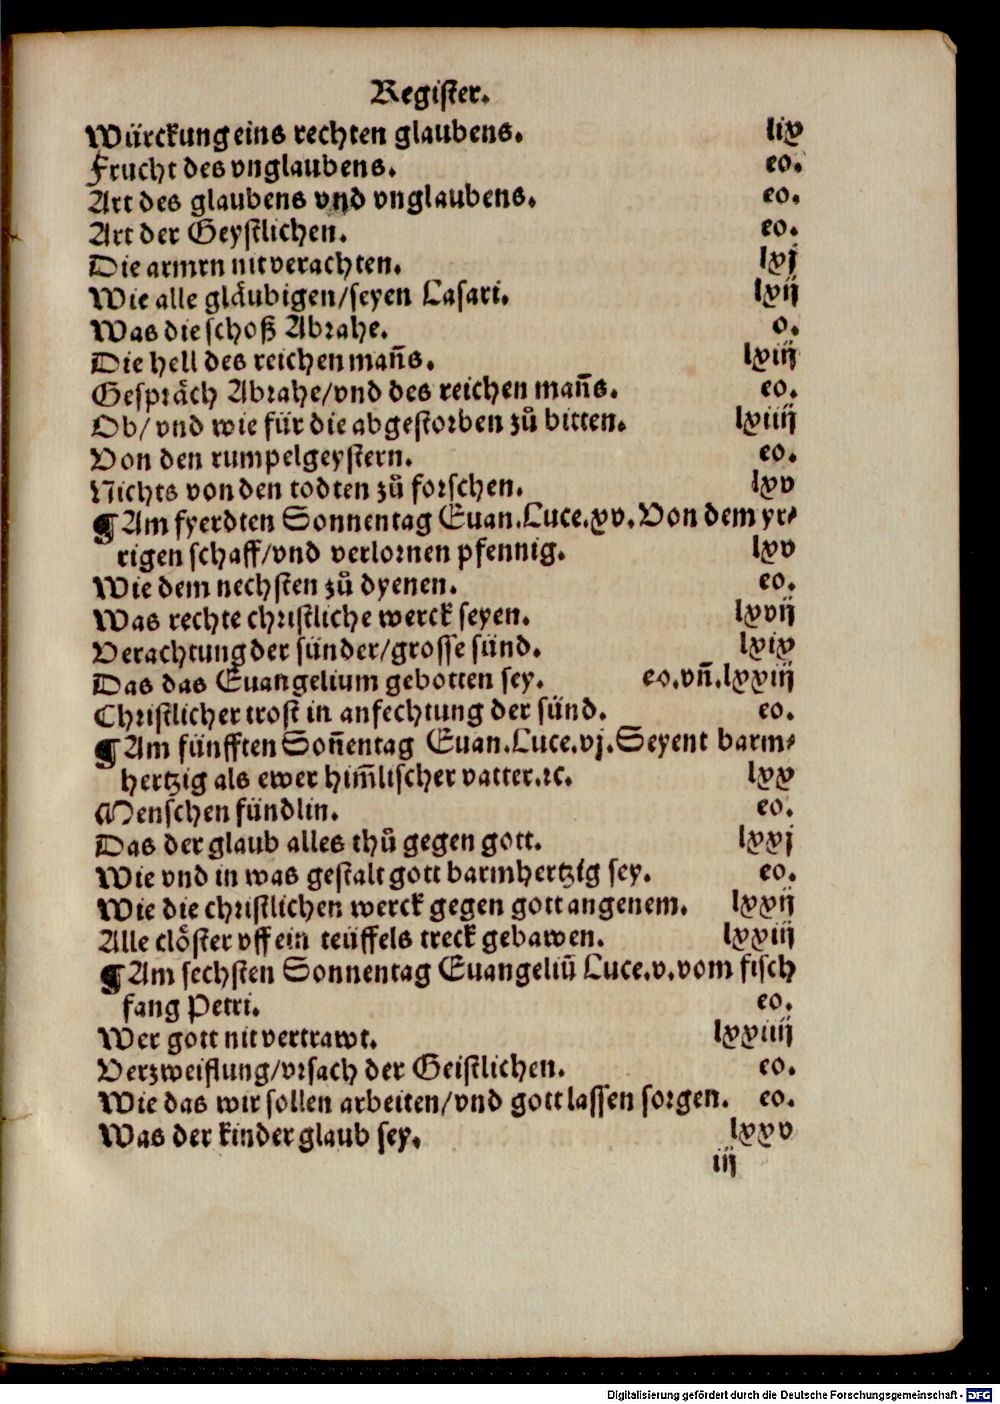 Register.
Würckung eins rechten glaubens. lix
Frucht des vnglaubens. eo.
Art des glaubens vnd vnglaubens. eo.
Art der Geystlichen. eo.
Die armrn nit verachten. lxj
Wie alle gläubigen/seyen Lasari. lxij
Was die schoß Abrahe. o.
Die hell des reichen mañs. lxiij
Gespräch Abrahe/vnd des reichen mañs. eo.
Ob/ vnd wie für die abgestorben zů bitten. lxiiij
Von den rumpelgeystern. eo.
Nichts von den todten zů forschen. lxv
¶ Am fyerdten Sonnentag Euan.Luce.xv. Von dem yr⸗
rigen schaff/vnd verlornen pfennig. lxv
Wie dem nechsten zů dyenen. eo.
Was rechte christliche werck seyen. lxvij
Verachtung der sünder/grosse sünd. lxix
Das das Euangelium gebotten sey. eo.vñ.lxxiij
Christlicher trost in anfechtung der sünd. eo.
¶ Am fünfften Soñentag Euan.Luce.vj. Seyent barm⸗
hertzig als ewer him̃lischer vatter.ꝛc. lxx
Menschen fündlin. eo.
Das der glaub alles thů gegen gott. lxxj
Wie vnd in was gestalt gott barmhertzig sey. eo.
Wie die christlichen werck gegen gott angenem. lxxij
Alle clöster vff ein teüffels treck gebawen. lxxiij
¶ Am sechsten Sonnentag Euangeliū Luce.v.vom fisch
fang Petri. eo.
Wer gott nit vertrawt. lxxiiij
Verzweiflung/vrsach der Geistlichen. eo.
Wie das wir sollen arbeiten/vnd gott lassen sorgen. eo.
Was der kinder glaub sey. lxxv
iij
Digitalisierung gefördert durch die Deutsche Forschungsgemeinschaft - DFG